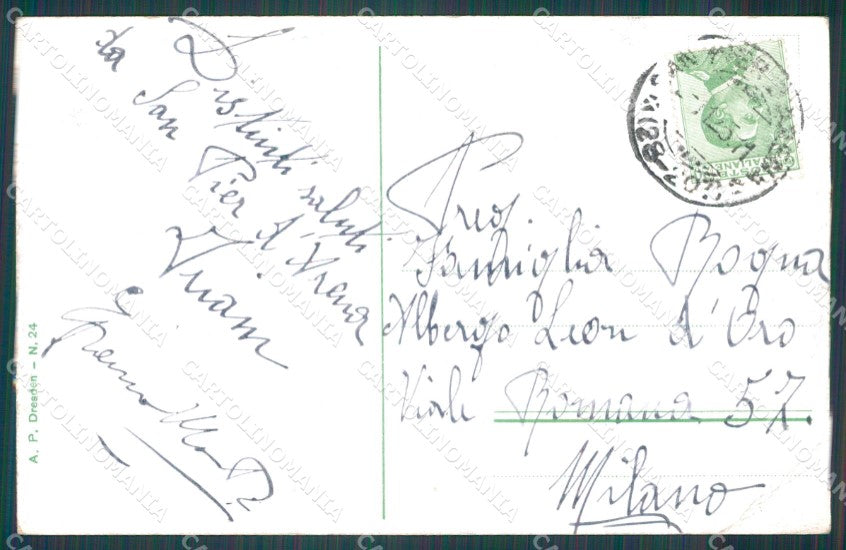 Distinti saluti
da San Pier d'Arena
A. P. Dresden – N. 24
Preg.
Famiglia Bogna
Albergo Leon d'Oro
Viale Romana 57.
Milano
CARTOLINOMANIA